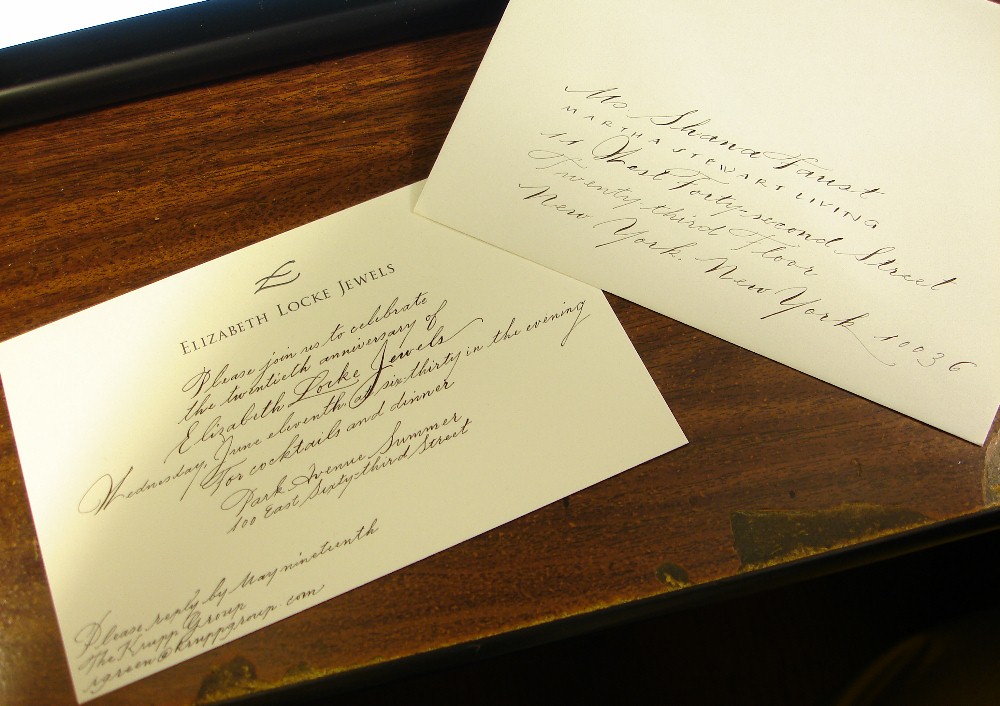 Elizabeth Locke Jewels
Please join us to celebrate
the twentieth anniversary of
Elizabeth Locke Jewels
Wednesday, June eleventh at six thirty in the evening
For cocktails and dinner
Park Avenue Summer
100 East Sixty-third Street
Please reply by May nineteenth
The Krupp Group
rgreen@kruppgroup.com
Ms. Shana Faust
MARTHA STEWART LIVING
11 West Forty-second Street
Twenty-third Floor
New York, New York 10036